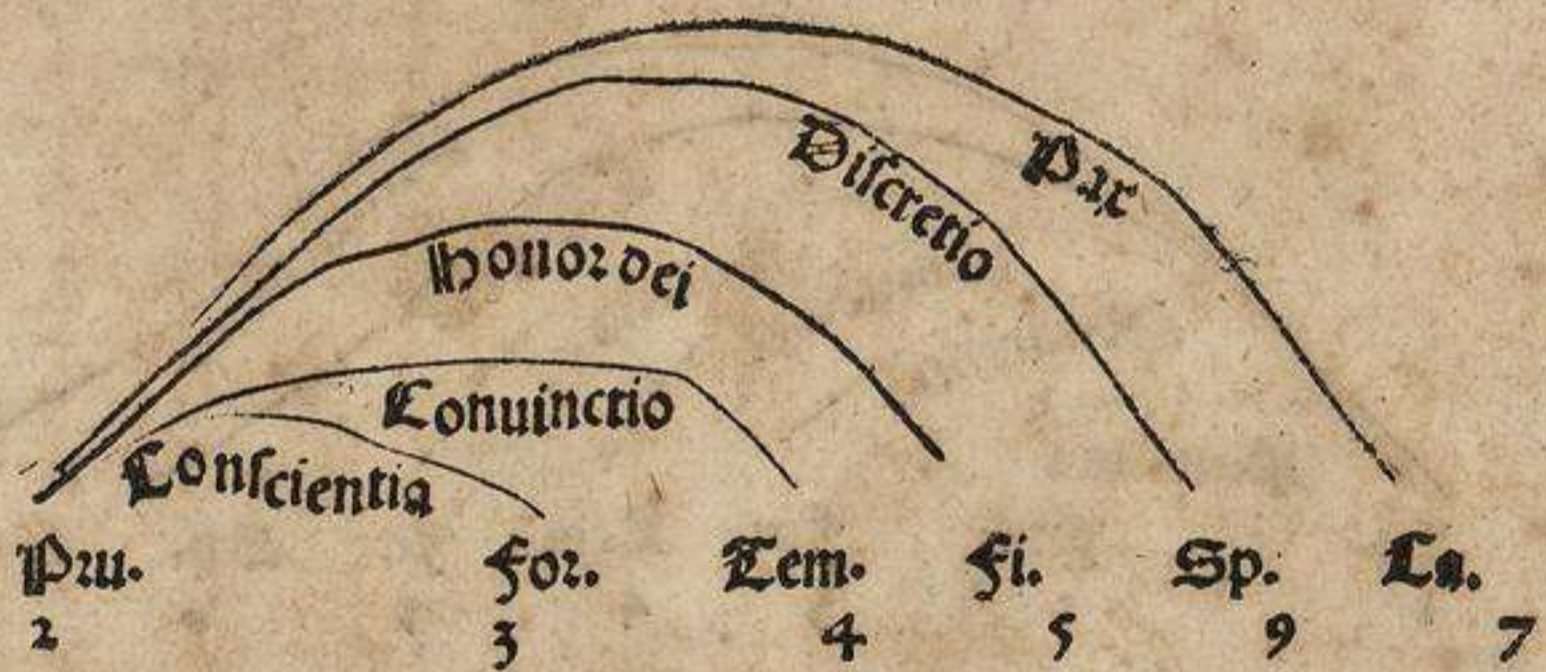 Pax
Discretio
Honor dei
Conuinctio
Conscientia
Pru. For. Tem. Fi. Sp. Ca.
2 3 4 5 9 7